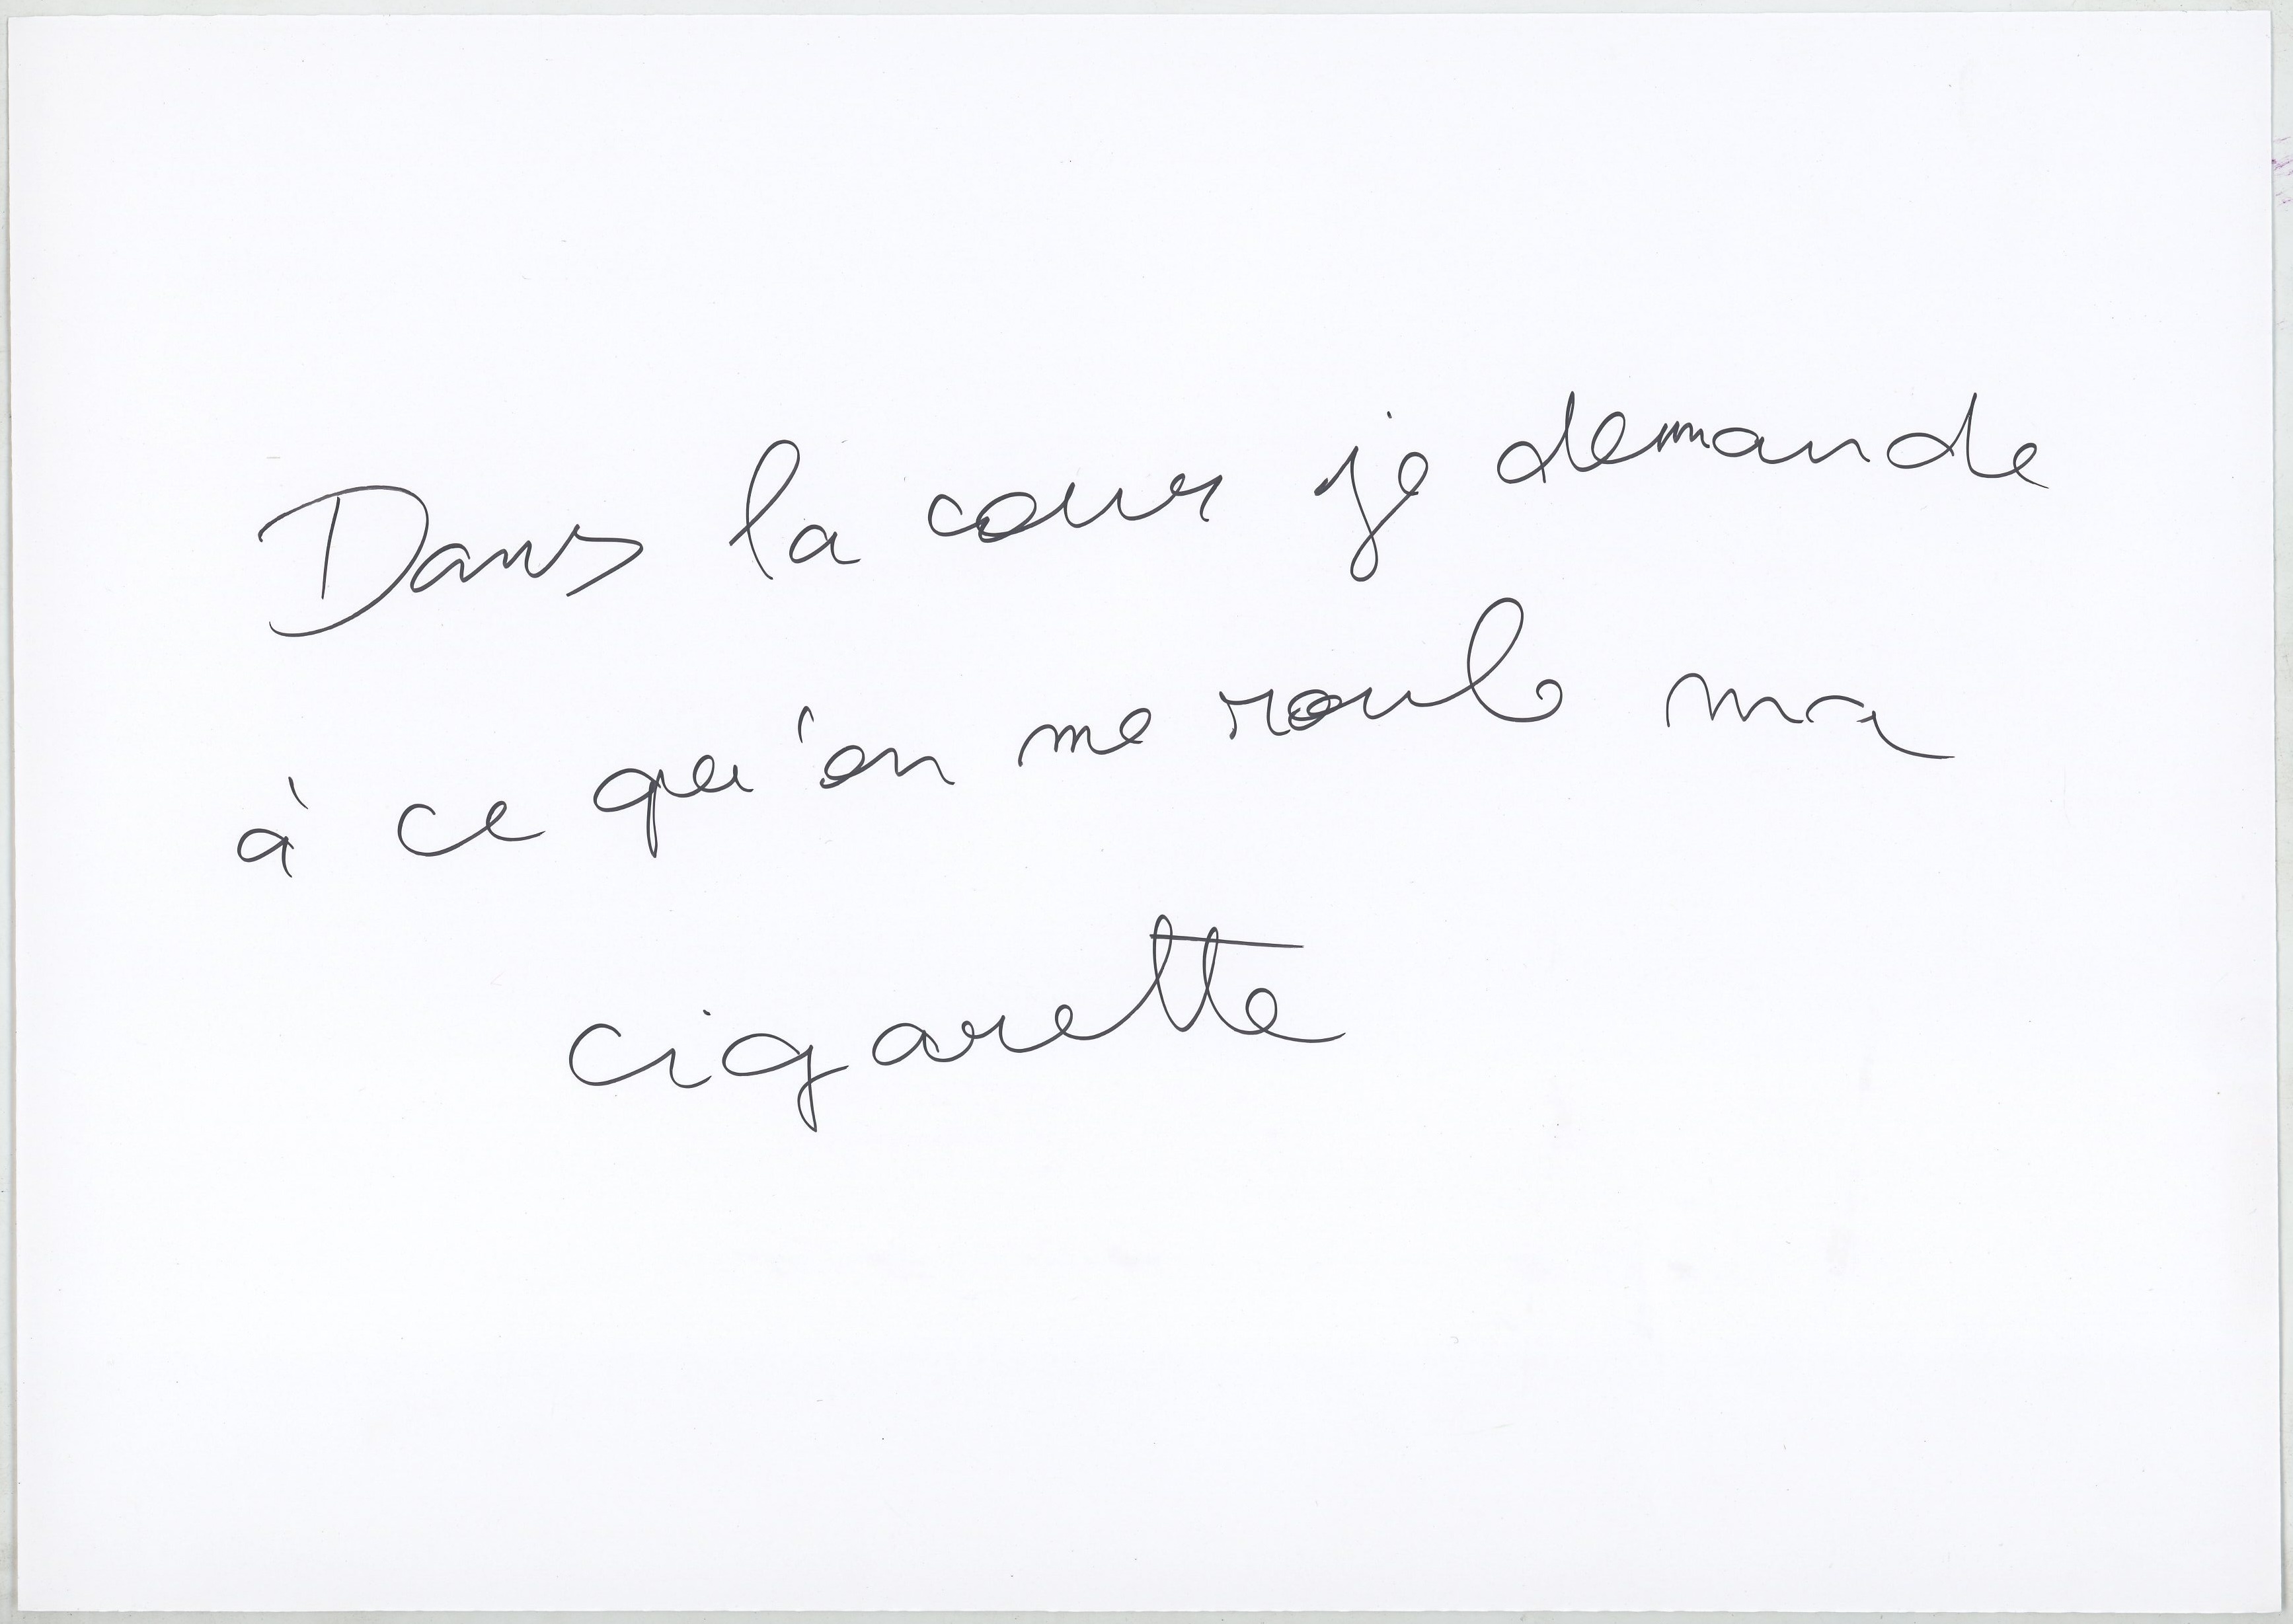 Dans la cour je demande
à ce qu'on me roule ma
cigarette